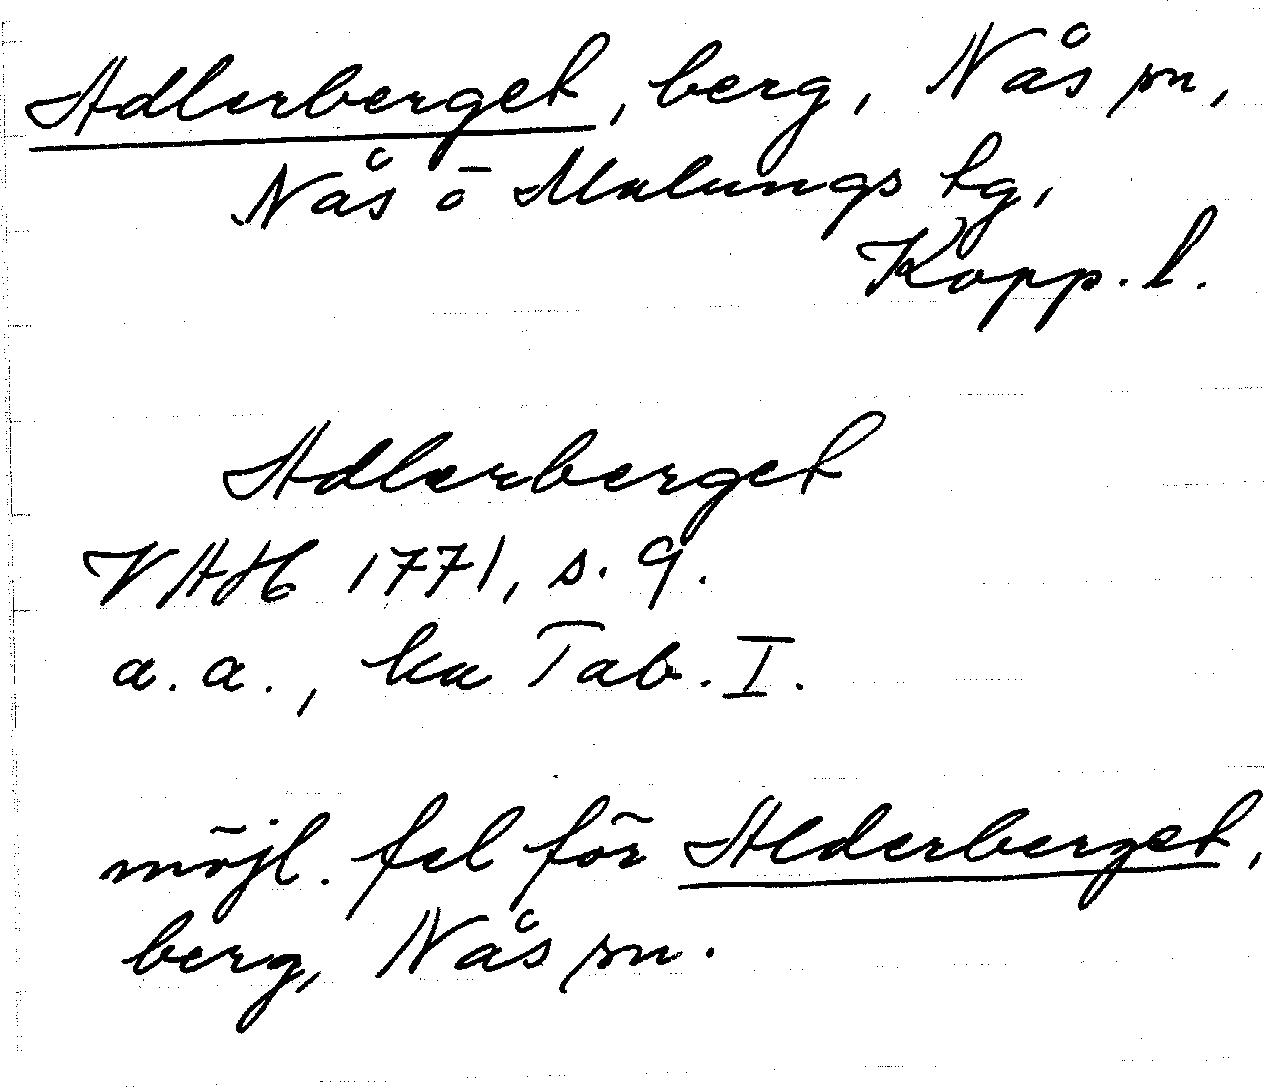 Adlerberget, berg, Nås sn,
Nås o Malungs tg,
Kopp. l.
Adlerberget
VAH 1771, s. 9.
a.a., ka Tab. I.
möjl. fel för Alderberget,
berg, Nås sn.